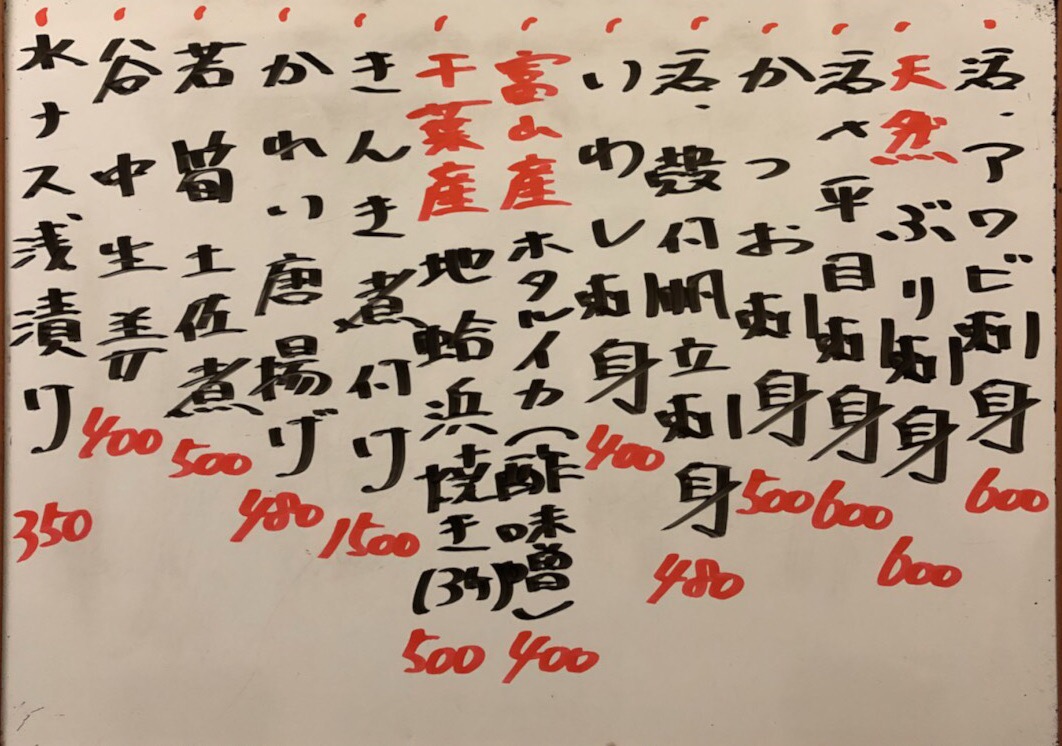 活・アワビ刺身 600
天然ぶり刺身 600
活〆平目刺身 600
かつお刺身 500
活・殻付帆立刺身 480
いわし刺身 400
富山産ホタルイカ(酢味噌) 400
千葉産地蛤浜焼き(3ケ) 500
きんき煮付け 1500
かれい唐揚げ 480
若筍土佐煮 500
谷中生姜 400
水ナス浅漬け 350